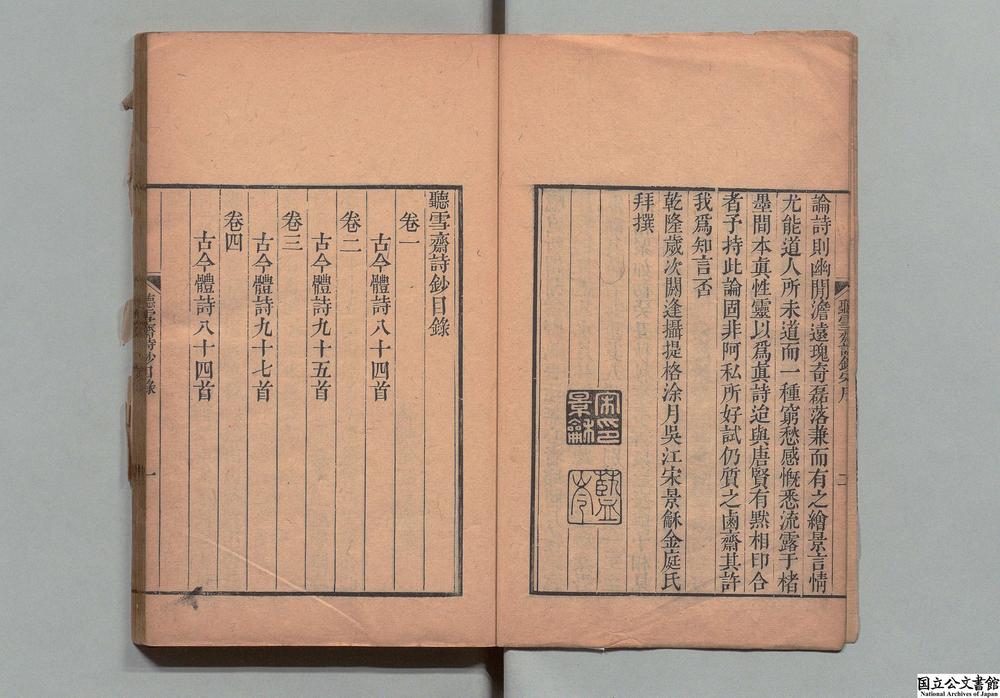 論詩則幽閒澹遠瑰奇磊落兼而有之繪景言情
尤能道人所未道而一種窮愁感慨悉流露于楮
墨間本眞性靈以爲眞詩迨與唐賢有黙相印合
者予持此論固非阿私所好試仍質之鹵齋其許
我爲知言否
乾隆歲次閼逢攝提格涂月吳江宋景龢金庭氏
拜撰
宋印
景龢
聽雪齋詩鈔目錄
卷一
古今體詩八十四首
卷二
古今體詩九十五首
卷三
古今體詩九十七首
卷四
古今體詩八十四首
聽雪齋詩鈔目錄
一
国立公文書館
National Archives of Japan